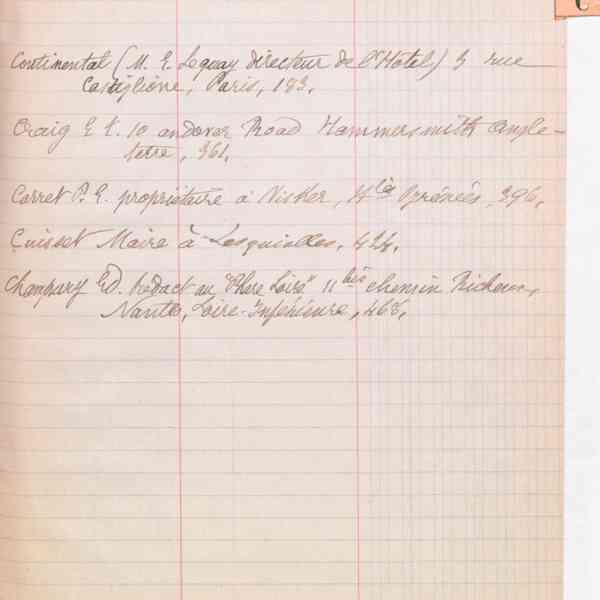 C
Continental (M. E. Lequay directeur de l'Hôtel) 3 rue
Castiglione, Paris, 183.
Craig E. t. 10 andover Road Hammersmith Angle-
terre, 361.
Carret P. E. propriétaire à Visker, Htes Pyrénées, 396.
Cuisset Maire à Lesquielles, 424.
Champury Ed. Rédact au "Phare Loire" 11 bis chemin
Nantes, Loire-Inférieure, 468.